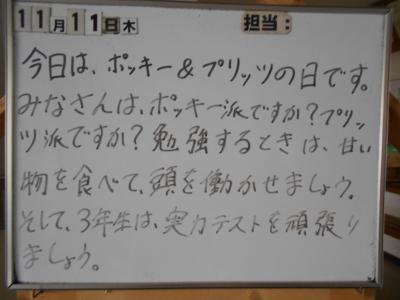 11月11日木 担当:
今日は、ポッキー&プリッツの日です。
みなさんは、ポッキー派ですか?プリッ
ツ派ですか?勉強するときは、甘い
物を食べて、頭を働かせましょう。
そして、3年生は、実力テストを頑張り
ましょう。